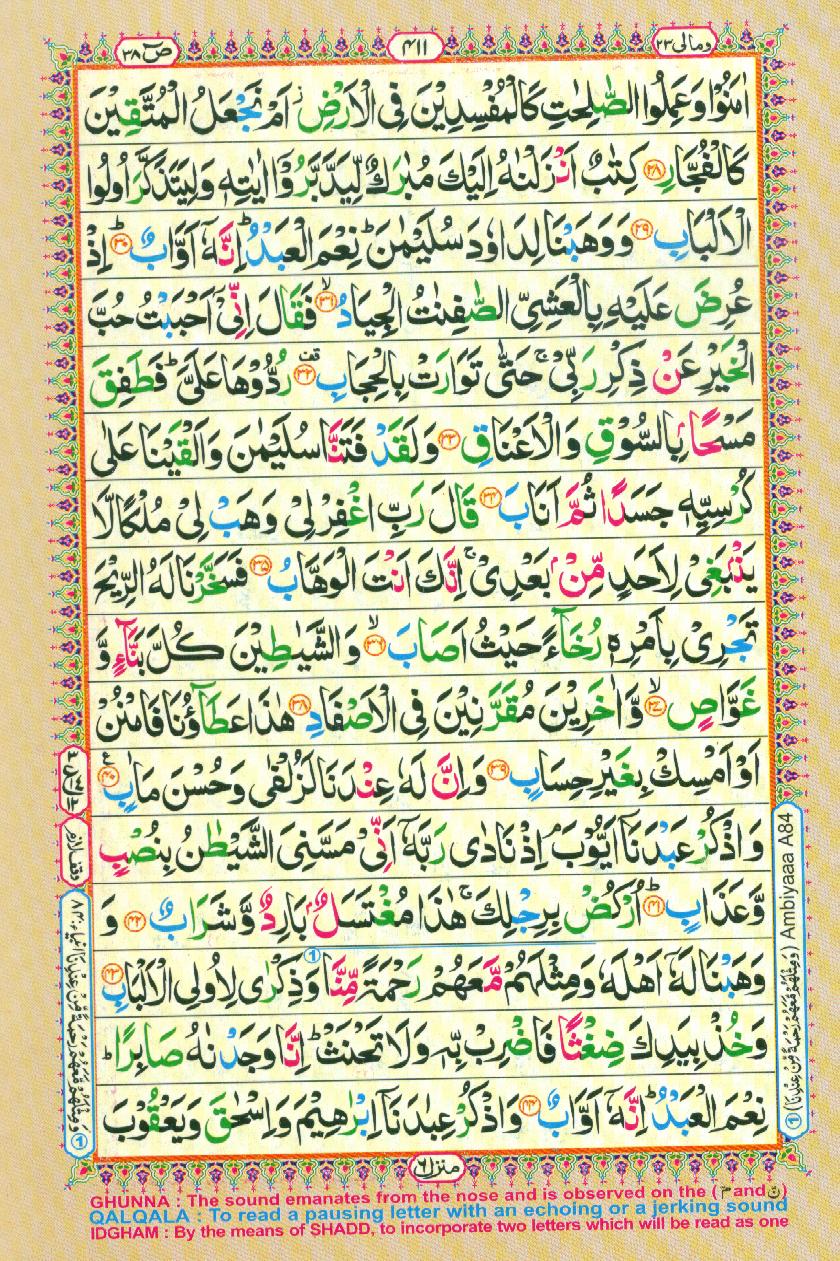 ومالی ۲۳
۴۱۱
صٓ ۳۸
اٰمَنُوْا وَعَمِلُوا الصّٰلِحٰتِ كَالْمُفْسِدِيْنَ فِى الْاَرْضِ ؗ اَمْ نَجْعَلُ الْمُتَّقِيْنَ
كَالْفُجَّارِ ﴿۲۸﴾ كِتٰبٌ اَنْزَلْنٰهُ اِلَيْكَ مُبٰرَكٌ لِّيَدَّبَّرُوْۤا اٰيٰتِهٖ وَلِيَتَذَكَّرَ اُولُوا
الْاَلْبَابِ ﴿۲۹﴾ وَوَهَبْنَا لِدَاوٗدَ سُلَيْمٰنَ ؕ نِعْمَ الْعَبْدُ ؕ اِنَّهٗۤ اَوَّابٌ ؕ ﴿۳۰﴾ اِذْ
عُرِضَ عَلَيْهِ بِالْعَشِىِّ الصّٰفِنٰتُ الْجِيَادُ ۙ ﴿۳۱﴾ فَقَالَ اِنِّىْۤ اَحْبَبْتُ حُبَّ
الْخَيْرِ عَنْ ذِكْرِ رَبِّىْ ۚ حَتّٰى تَوَارَتْ بِالْحِجَابِ ﴿۳۲﴾ رُدُّوْهَا عَلَىَّ ؕ فَطَفِقَ
مَسْحًا ۢ بِالسُّوْقِ وَالْاَعْنَاقِ ﴿۳۳﴾ وَلَقَدْ فَتَنَّا سُلَيْمٰنَ وَاَلْقَيْنَا عَلٰى
كُرْسِيِّهٖ جَسَدًا ثُمَّ اَنَابَ ﴿۳۴﴾ قَالَ رَبِّ اغْفِرْ لِىْ وَهَبْ لِىْ مُلْكًا لَّا
يَنْۢبَغِىْ لِاَحَدٍ مِّنْۢ بَعْدِىْ ۚ اِنَّكَ اَنْتَ الْوَهَّابُ ﴿۳۵﴾ فَسَخَّرْنَا لَهُ الرِّيْحَ
تَجْرِىْ بِاَمْرِهٖ رُخَآءً حَيْثُ اَصَابَ ۙ ﴿۳۶﴾ وَالشَّيٰطِيْنَ كُلَّ بَنَّآءٍ وَّ
غَوَّاصٍ ۙ ﴿۳۷﴾ وَّاٰخَرِيْنَ مُقَرَّنِيْنَ فِى الْاَصْفَادِ ﴿۳۸﴾ هٰذَا عَطَآؤُنَا فَامْنُنْ
اَوْ اَمْسِكْ بِغَيْرِ حِسَابٍ ﴿۳۹﴾ وَاِنَّ لَهٗ عِنْدَنَا لَزُلْفٰى وَحُسْنَ مَاٰبٍ ﴿۴۰﴾
وَاذْكُرْ عَبْدَنَاۤ اَيُّوْبَ ۘ اِذْ نَادٰى رَبَّهٗۤ اَنِّىْ مَسَّنِىَ الشَّيْطٰنُ بِنُصْبٍ
وَّعَذَابٍ ؕ ﴿۴۱﴾ اُرْكُضْ بِرِجْلِكَ ۚ هٰذَا مُغْتَسَلٌ ۢ بَارِدٌ وَّشَرَابٌ ﴿۴۲﴾ وَ
وَهَبْنَا لَهٗۤ اَهْلَهٗ وَمِثْلَهُمْ مَّعَهُمْ رَحْمَةً مِّنَّا وَذِكْرٰى لِاُولِى الْاَلْبَابِ ﴿۴۳﴾
وَخُذْ بِيَدِكَ ضِغْثًا فَاضْرِبْ بِّهٖ وَلَا تَحْنَثْ ؕ اِنَّا وَجَدْنٰهُ صَابِرًا ؕ
نِعْمَ الْعَبْدُ ؕ اِنَّهٗۤ اَوَّابٌ ﴿۴۴﴾ وَاذْكُرْ عِبٰدَنَاۤ اِبْرٰهِيْمَ وَاِسْحٰقَ وَيَعْقُوْبَ
منزل ۶
وقف لازم
① (وَمِثْلَهُمْ مَّعَهُمْ رَحْمَةً مِّنْ عِنْدِنَا) Ambiyaaa A84
① وَمِثْلَهُمْ مَّعَهُمْ رَحْمَةً مِّنْ عِنْدِنَا انبیاء: ۸۴
GHUNNA : The sound emanates from the nose and is observed on the (مّ and نّ)
QALQALA : To read a pausing letter with an echoing or a jerking sound
IDGHAM : By the means of SHADD, to incorporate two letters which will be read as one